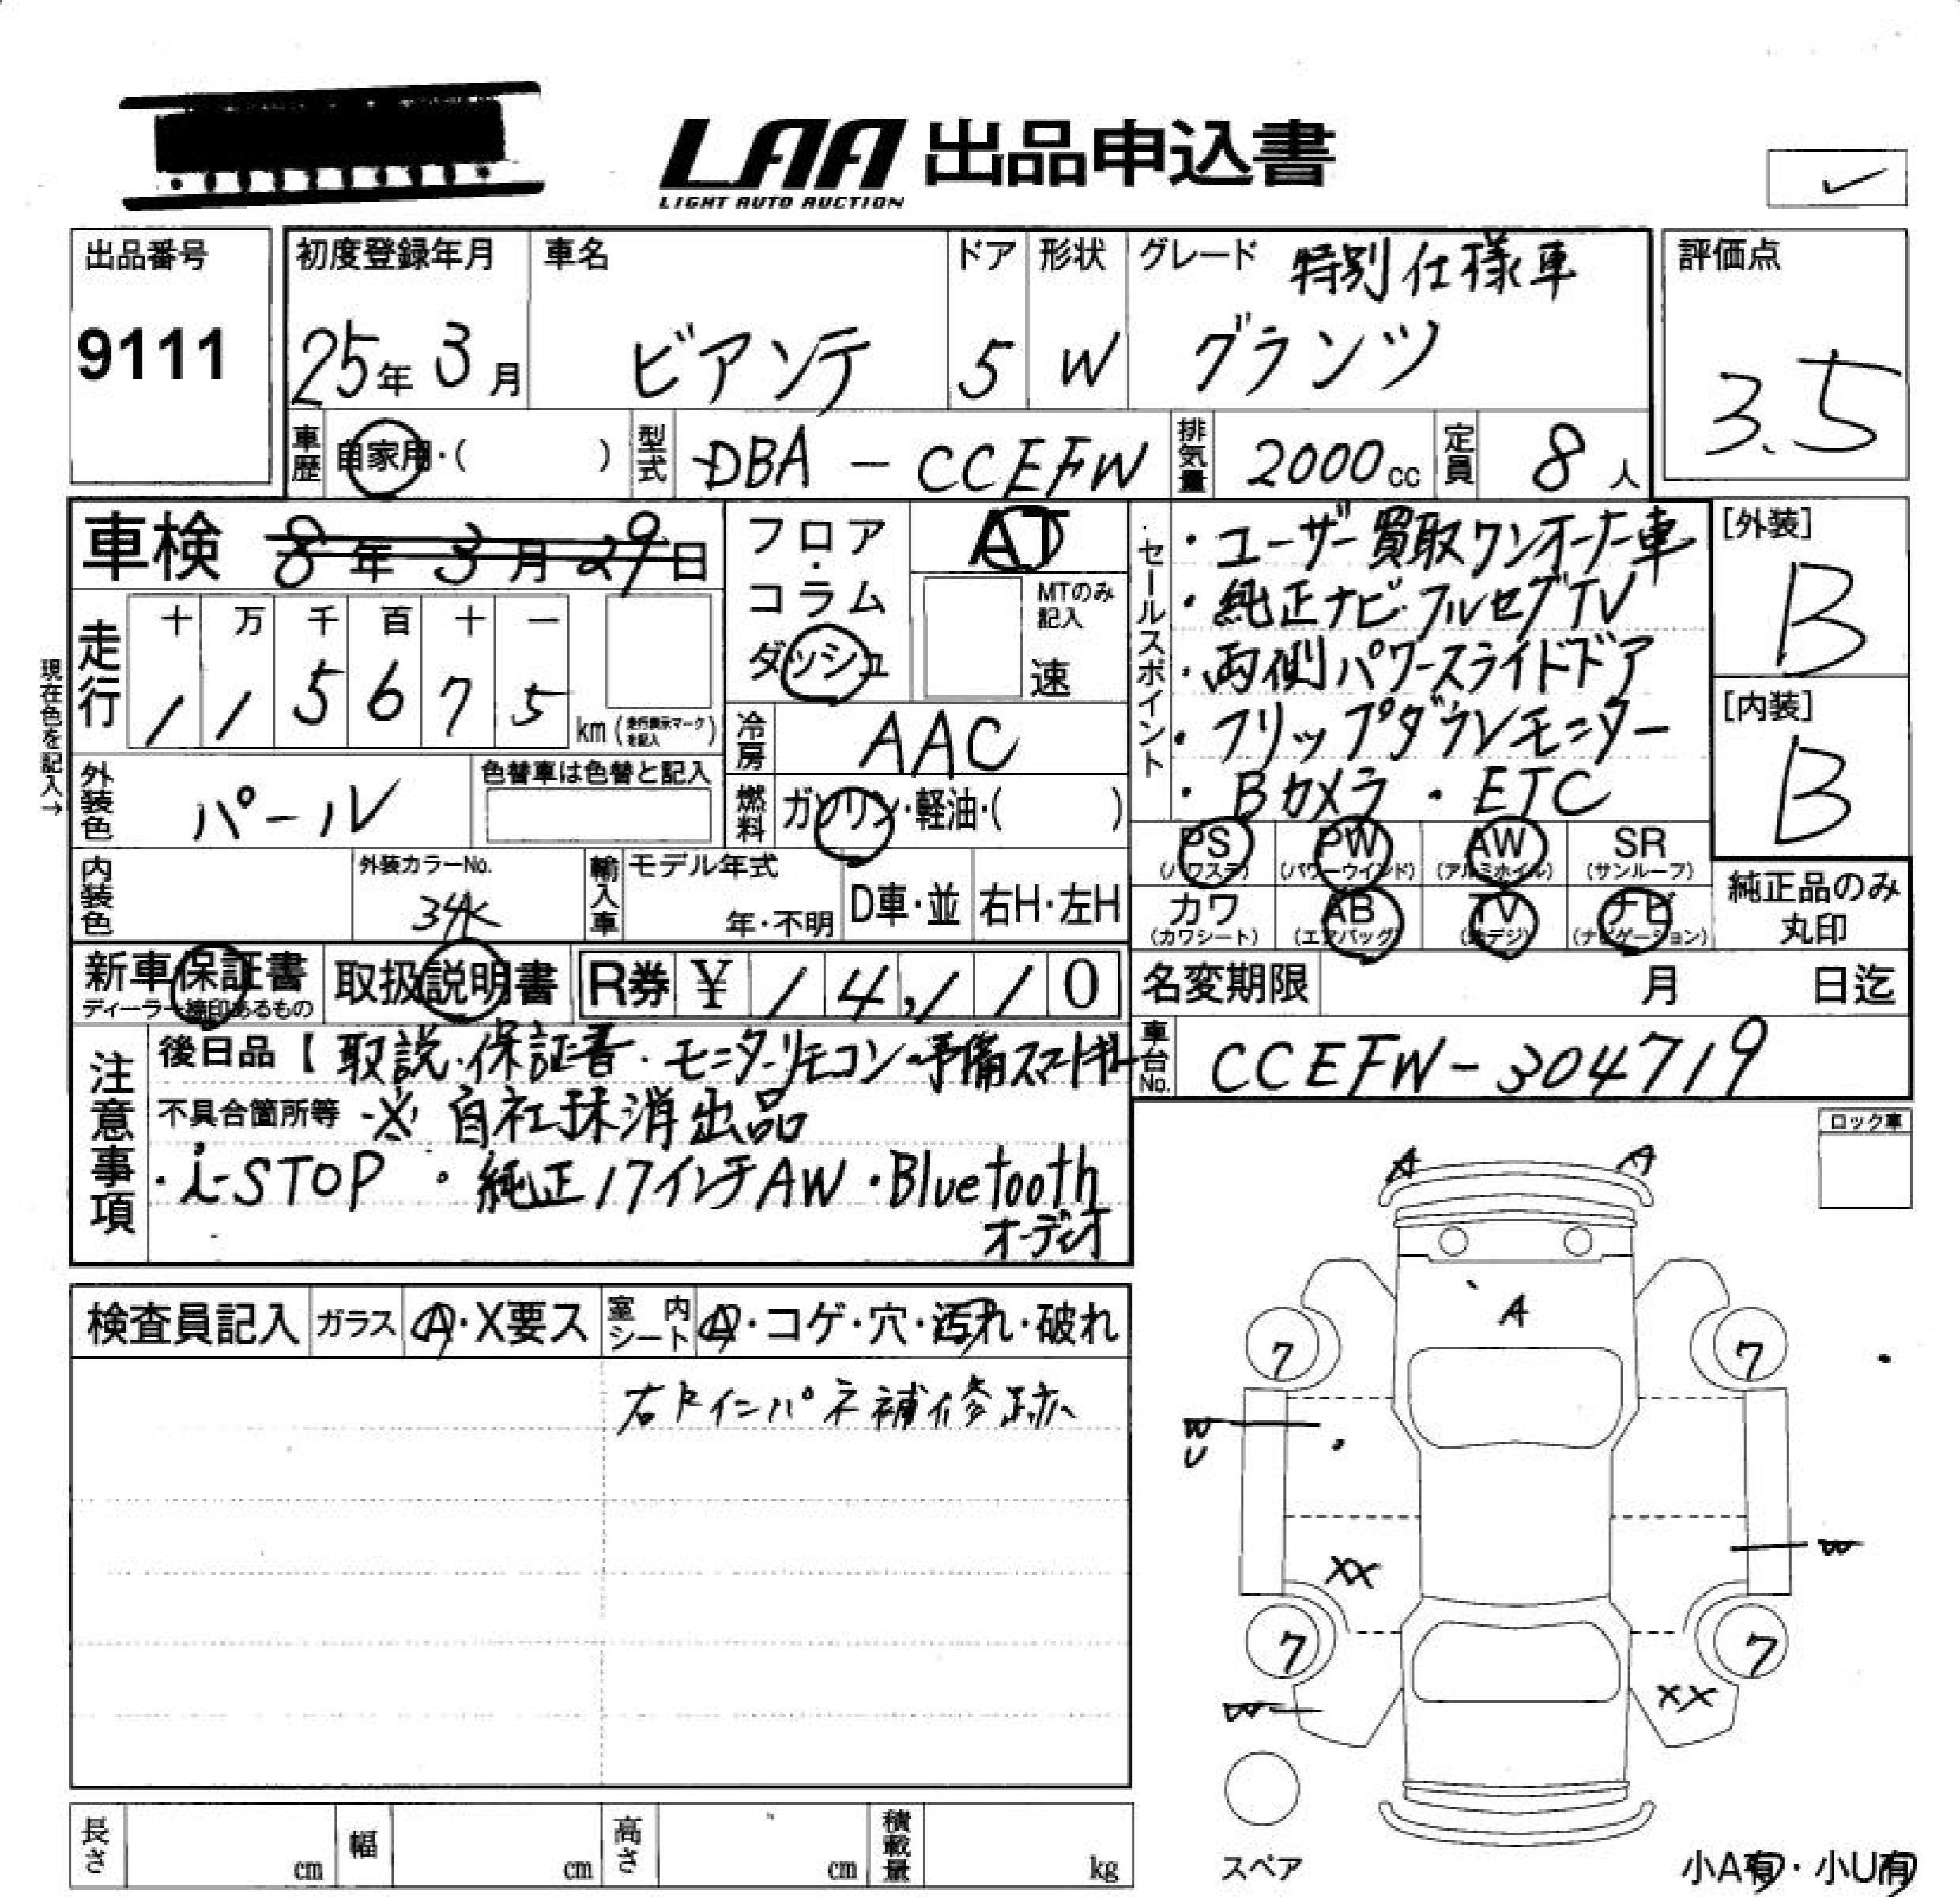 LAA 出品申込書
LIGHT AUTO AUCTION
✓
出品番号
9111
初度登録年月
25年 3月
車名
ビアンテ
ドア
5
形状
W
グレード 特別仕様車
グランツ
評価点
3.5
車歴 自家用・( )
型式 DBA - CCEFW
排気量 2000cc
定員 8人
車検 8年 3月 29日
走行 十 万 千 百 十 一
1 1 5 6 7 5 km (走行表示マークを記入)
現在色を記入→
フロア・コラム
ダッシュ
AT
MTのみ記入
速
冷房 AAC
燃料 ガソリン・軽油・( )
セールスポイント
・ユーザー買取ワンオーナー車
・純正ナビ・フルセグTV
・両側パワースライドドア
・フリップダウンモニター
・Bカメラ ・ETC
[外装]
B
[内装]
B
外装色 パール
色替車は色替と記入
内装色
外装カラーNo.
34K
輸入車 モデル年式
年・不明
D車・並 右H・左H
PS (パワステ) PW (パワーウインド) AW (アルミホイル) SR (サンルーフ)
カワ (カワシート) AB (エアバッグ) TV (地デジ) ナビ (ナビゲーション)
純正品のみ丸印
新車保証書
ディーラー捺印あるもの
取扱説明書
R券 ¥ 14,110
名変期限 月 日迄
車台No. CCEFW-304719
注意事項
後日品【 取説・保証書・モニターリモコン・予備スマートキー
不具合箇所等 ※ 自社抹消出品
・i-STOP ・純正17インチAW ・Bluetooth
オーディオ
ロック車
検査員記入 ガラス A・X要ス 室内シート A・コゲ・穴・汚れ・破れ
右F インパネ補修跡
A A
A
7 7
W
U
W
XX
7 7
W
XX
スペア
小A有・小U有
長さ cm 幅 cm 高さ cm 積載量 kg